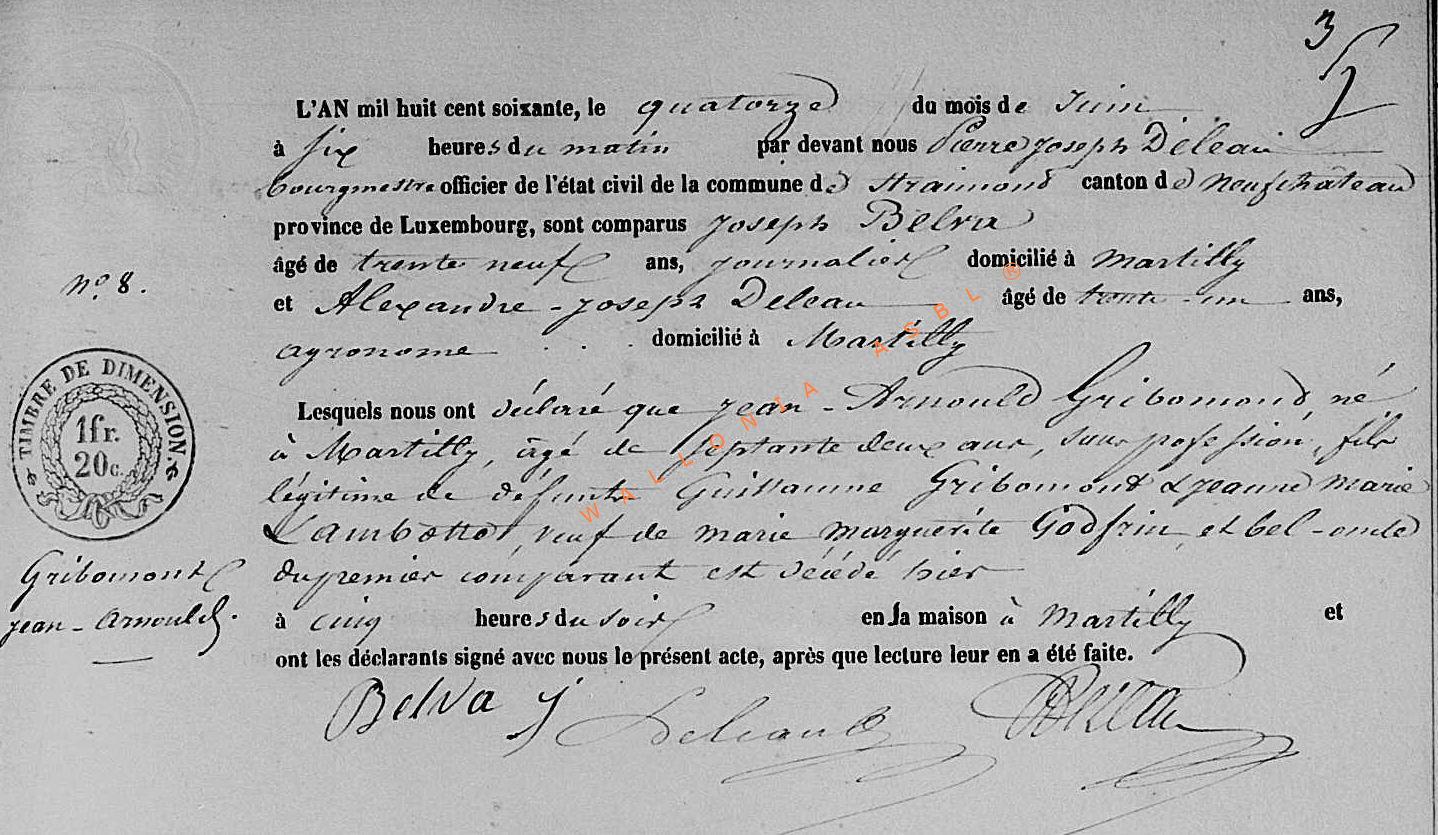 3
L'AN mil huit cent soixante, le quatorze du mois de Juin
à six heures du matin par devant nous Pierre Joseph Déleau
bourgmestre officier de l'état civil de la commune de Straimond canton de Neufchâteau
province de Luxembourg, sont comparus Joseph Belva
âgé de trente neuf ans, journalier domicilié à Martilly
et Alexandre-Joseph Deleau âgé de trente-un ans,
agronome domicilié à Martilly
Lesquels nous ont déclaré que Jean-Arnould Gribomond, né
à Martilly, âgé de septante deux ans, sans pofession, fils
légitime de défunts Guillaume Gribomont & Jeanne Marie
Lambottet, veuf de marie Marguerite Godfrin, et bel-oncle
du premier comparant est décédé hier
à cinq heures du soir en sa maison à Martilly et
ont les déclarants signé avec nous le présent acte, après que lecture leur en a été faite.
Belva j
WALLONIA ASBL ®
no. 8.
TIMBRE DE DIMENSION
1fr.
20c.
Gribomont
jean-Arnould.